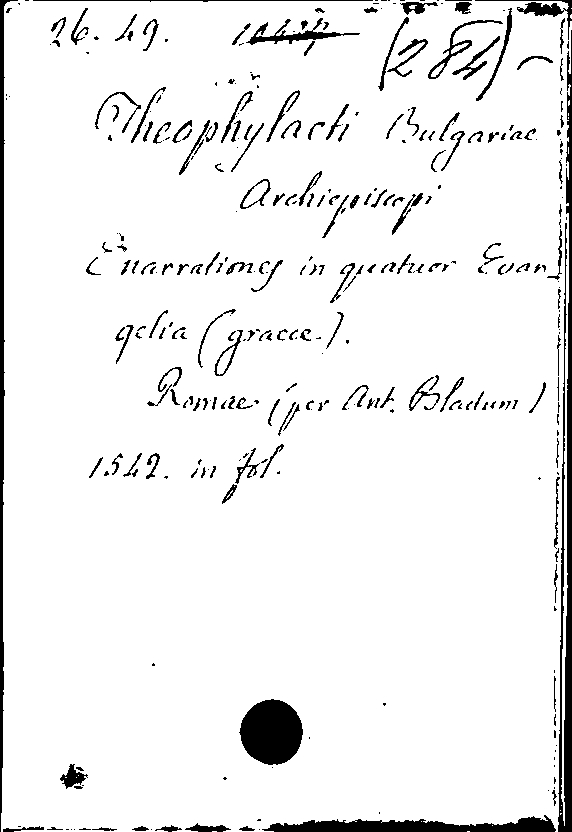 26. 49. (284) -
Theophylacti Bulgariae
Archiepiscopi
Enarrationes in quatuor Evan-
gelia (graece.).
Romae (per Ant. Bladum)
1542. in fol.